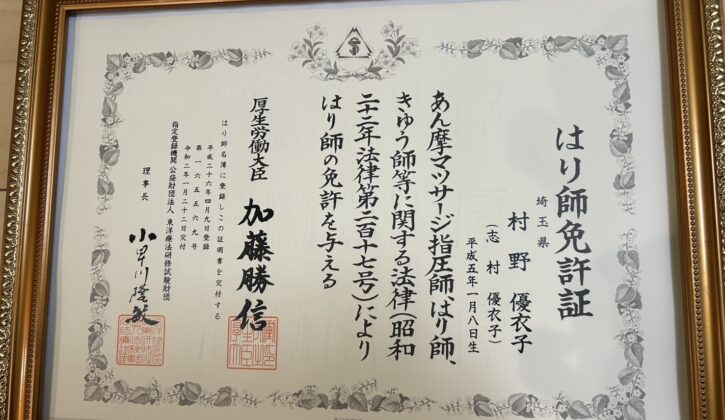 はり師免許証
埼玉県
村野 優衣子
(志村 優衣子)
平成五年一月八日生
あん摩マツサージ指圧師、はり師、
きゆう師等に関する法律(昭和
二十二年法律第二百十七号)により
はり師の免許を与える
厚生労働大臣 加藤勝信
はり師名簿に登録しこの証明書を交付する
平成二十六年四月九日登録
第一六五五六九号
令和二年一月二十二日交付
指定登録機関 公益財団法人 東洋療法研修試験財団
理事長 小早川隆敏